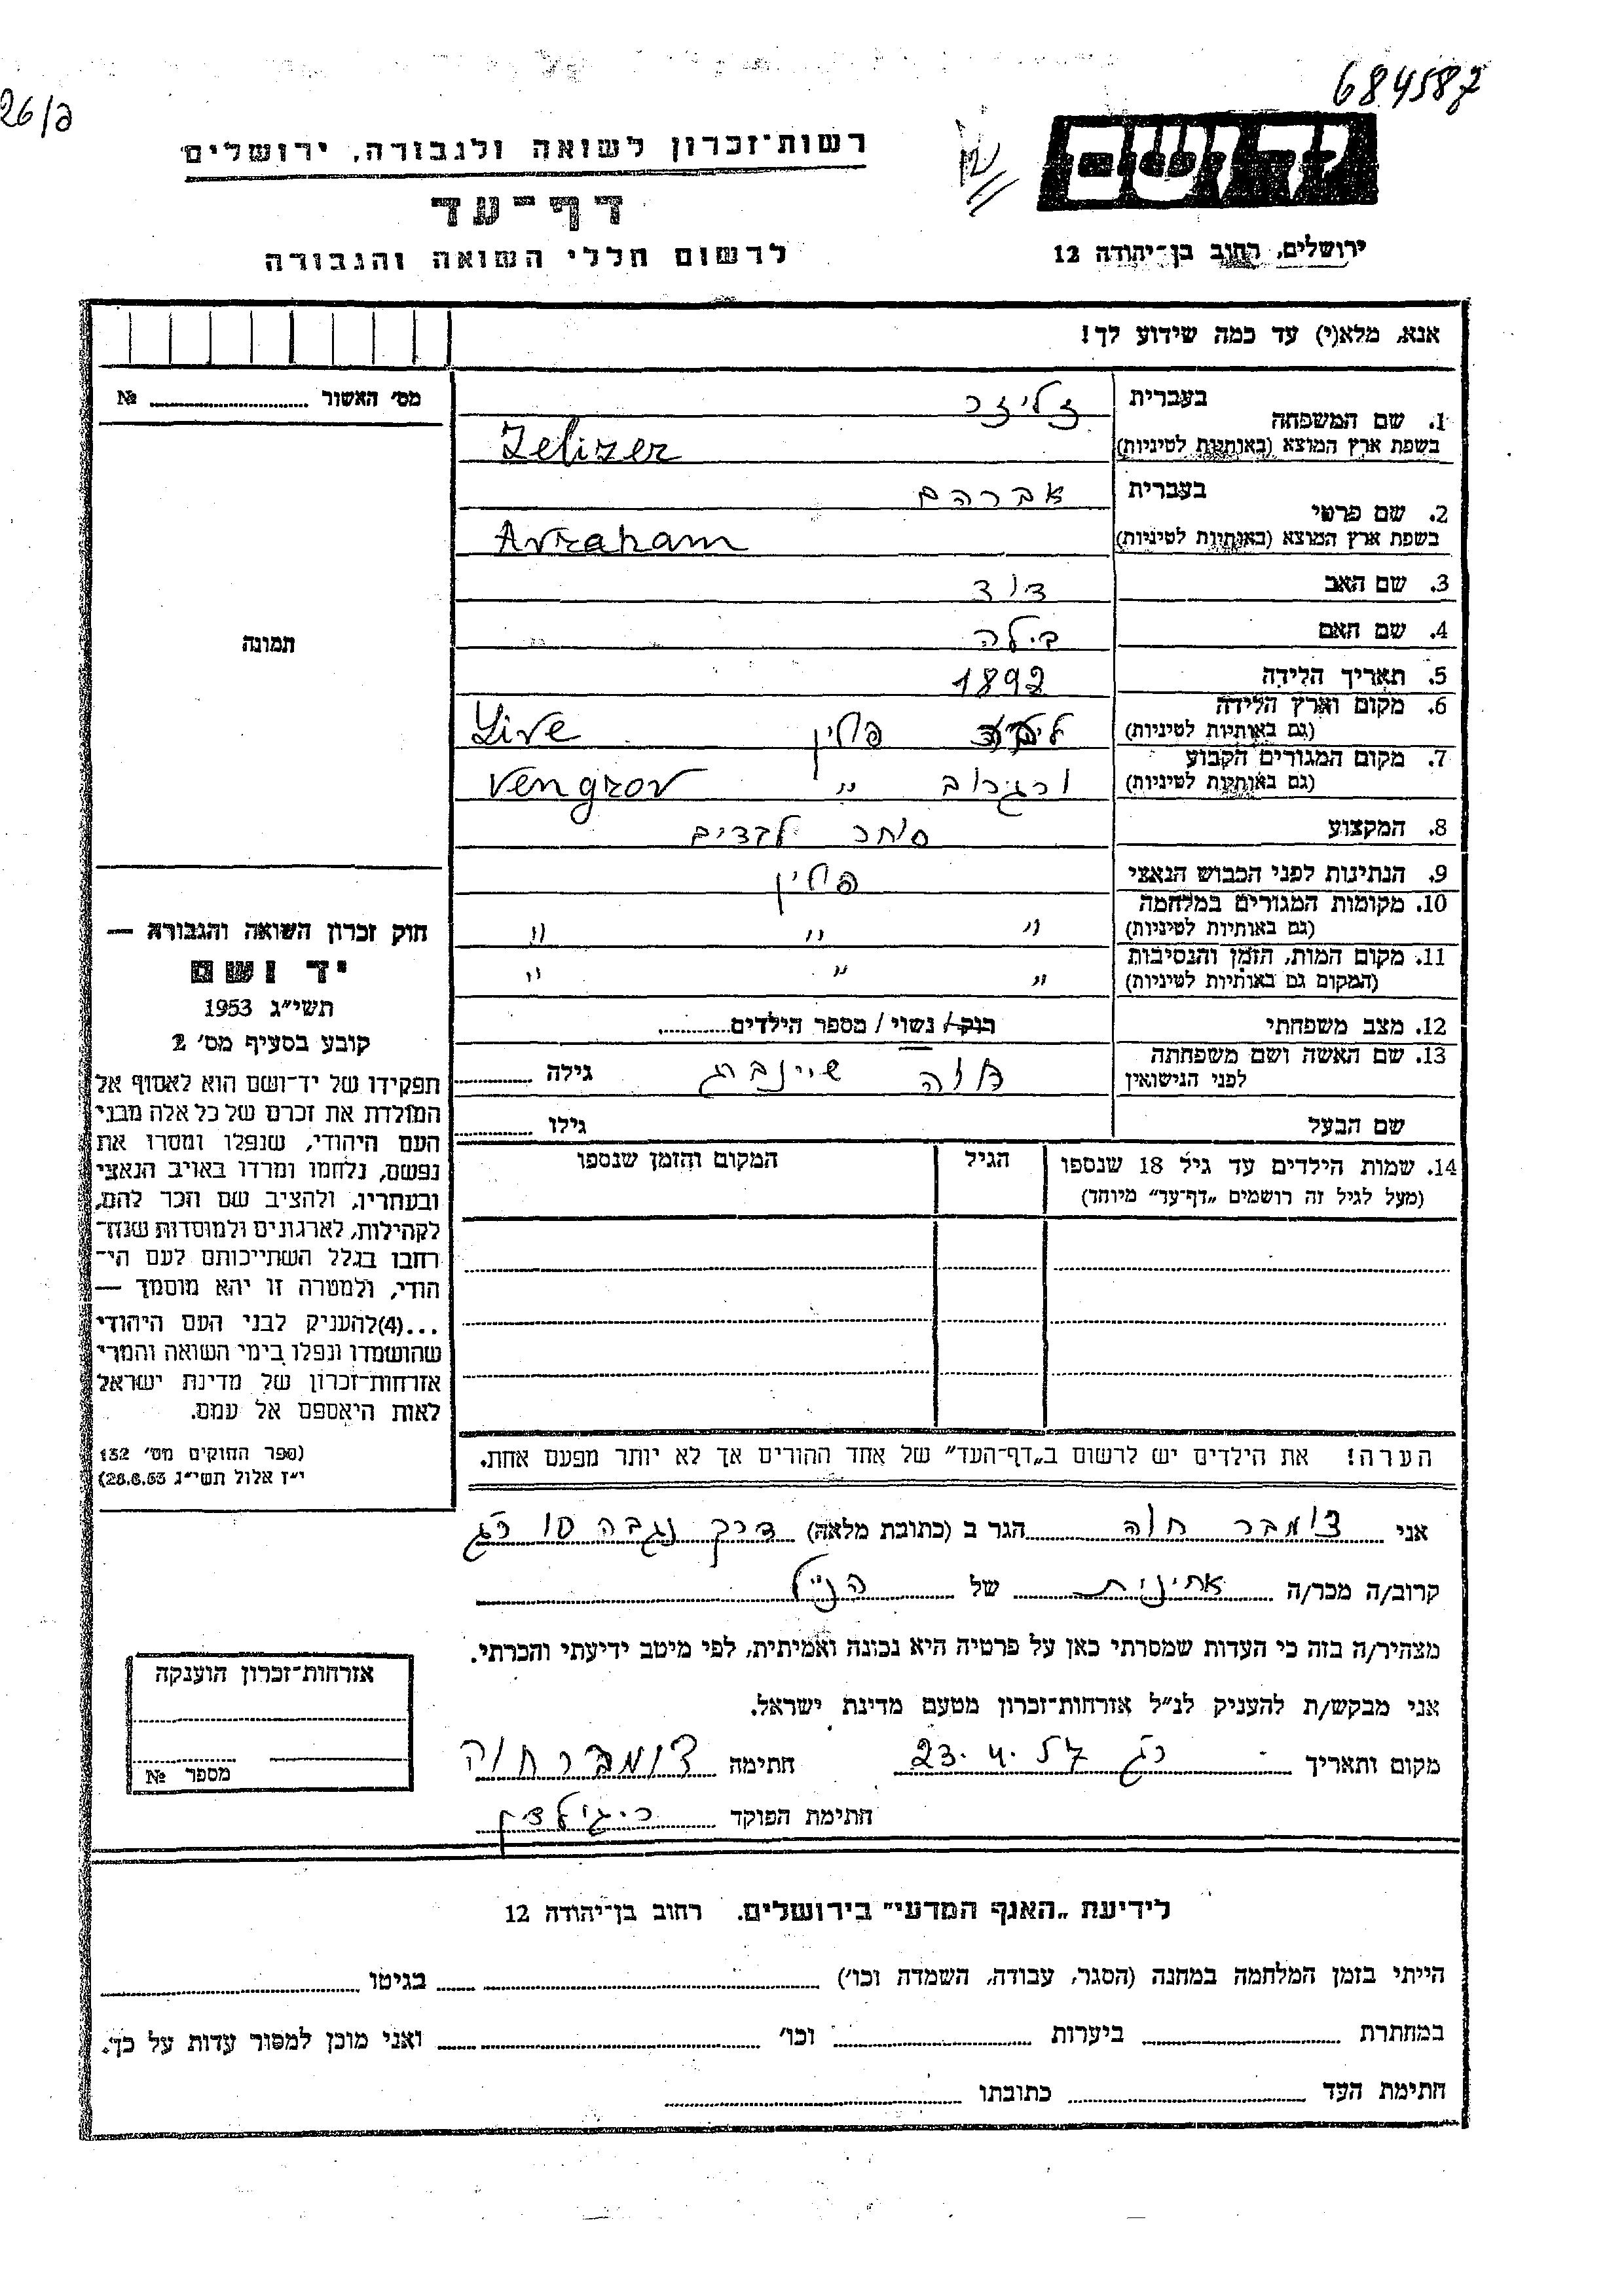 684587
26/a
יד ושם
רשות־זכרון לשואה ולגבורה, ירושלים
דף־עד
לרשום חללי השואה והגבורה
ירושלים, רחוב בן־יהודה 12
אנא, מלא(י) עד כמה שידוע לך!
מס' האשור № 
1. שם המשפחה
בעברית זליזר
בשפת ארץ המוצא (באותיות לטיניות) Zelizer
2. שם פרטי
בעברית אברהם
בשפת ארץ המוצא (באותיות לטיניות) Avraham
3. שם האב דוד
4. שם האם בילה
5. תאריך הלידה 1892
6. מקום וארץ הלידה
(גם באותיות לטיניות) פולין Live
7. מקום המגורים הקבוע
(גם באותיות לטיניות) ורגרוב " Vengrov
8. המקצוע סוחר
9. הנתינות לפני הכבוש הנאצי פולין
10. מקומות המגורים במלחמה
(גם באותיות לטיניות) " " "
11. מקום המות, הזמן והנסיבות
(המקום גם באותיות לטיניות) " " "
12. מצב משפחתי רווק / נשוי / מספר הילדים
13. שם האשה ושם משפחתה
לפני הנישואין חוה שיינברג גילה
שם הבעל גילו
14. שמות הילדים עד גיל 18 שנספו
(מעל לגיל זה רושמים „דף־עד" מיוחד)
הגיל
המקום והזמן שנספו
תמונה
חוק זכרון השואה והגבורה —
יד ושם
תשי"ג 1953
קובע בסעיף מס' 2
תפקידו של יד־ושם הוא לאסוף אל
המולדת את זכרם של כל אלה מבני
העם היהודי, שנפלו ומסרו את
נפשם, נלחמו ומרדו באויב הנאצי
ובעוזריו, ולהציב שם וזכר להם,
לקהילות, לארגונים ולמוסדות שנח־
רבו בגלל השתייכותם לעם הי־
הודי, ולמטרה זו יהא מוסמך —
...(4) להעניק לבני העם היהודי
שהושמדו ונפלו בימי השואה והמרי
אזרחות־זכרון של מדינת ישראל
לאות היאספם אל עמם.
(ספר החוקים מס' 132
י"ז אלול תשי"ג 28.8.53)
הערה! את הילדים יש לרשום ב„דף־העד" של אחד ההורים אך לא יותר מפעם אחת.
אני צומבר חוה הגר ב (כתובת מלאה) דרך נגבה 10 רג
קרוב/ה מכר/ה אחינית של הנ"ל
מצהיר/ה בזה כי העדות שמסרתי כאן על פרטיה היא נכונה ואמיתית, לפי מיטב ידיעתי והכרתי.
אני מבקש/ת להעניק לנ"ל אזרחות־זכרון מטעם מדינת ישראל.
מקום ותאריך רג 23.4.57 חתימה צומבר חוה
חתימת הפוקד
אזרחות־זכרון הוענקה
מספר №
לידיעת „האגף המדעי" בירושלים. רחוב בן־יהודה 12
הייתי בזמן המלחמה במחנה (הסגר, עבודה, השמדה וכו') בגיטו
במחתרת ביערות וכו' ואני מוכן למסור עדות על כך.
חתימת העד כתובתו